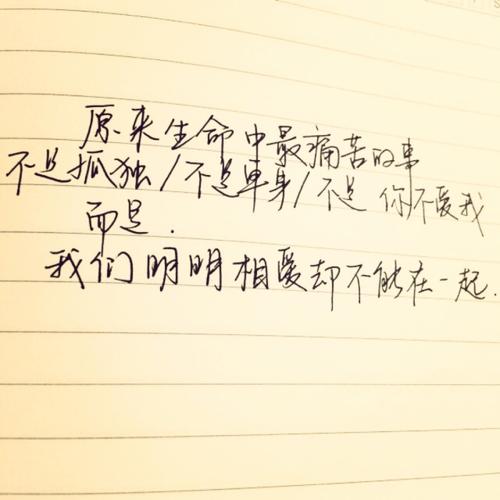 原来生命中最痛苦的事
不是孤独/不是单身/不是 你不爱我
而是.
我们明明相爱却不能在一起.